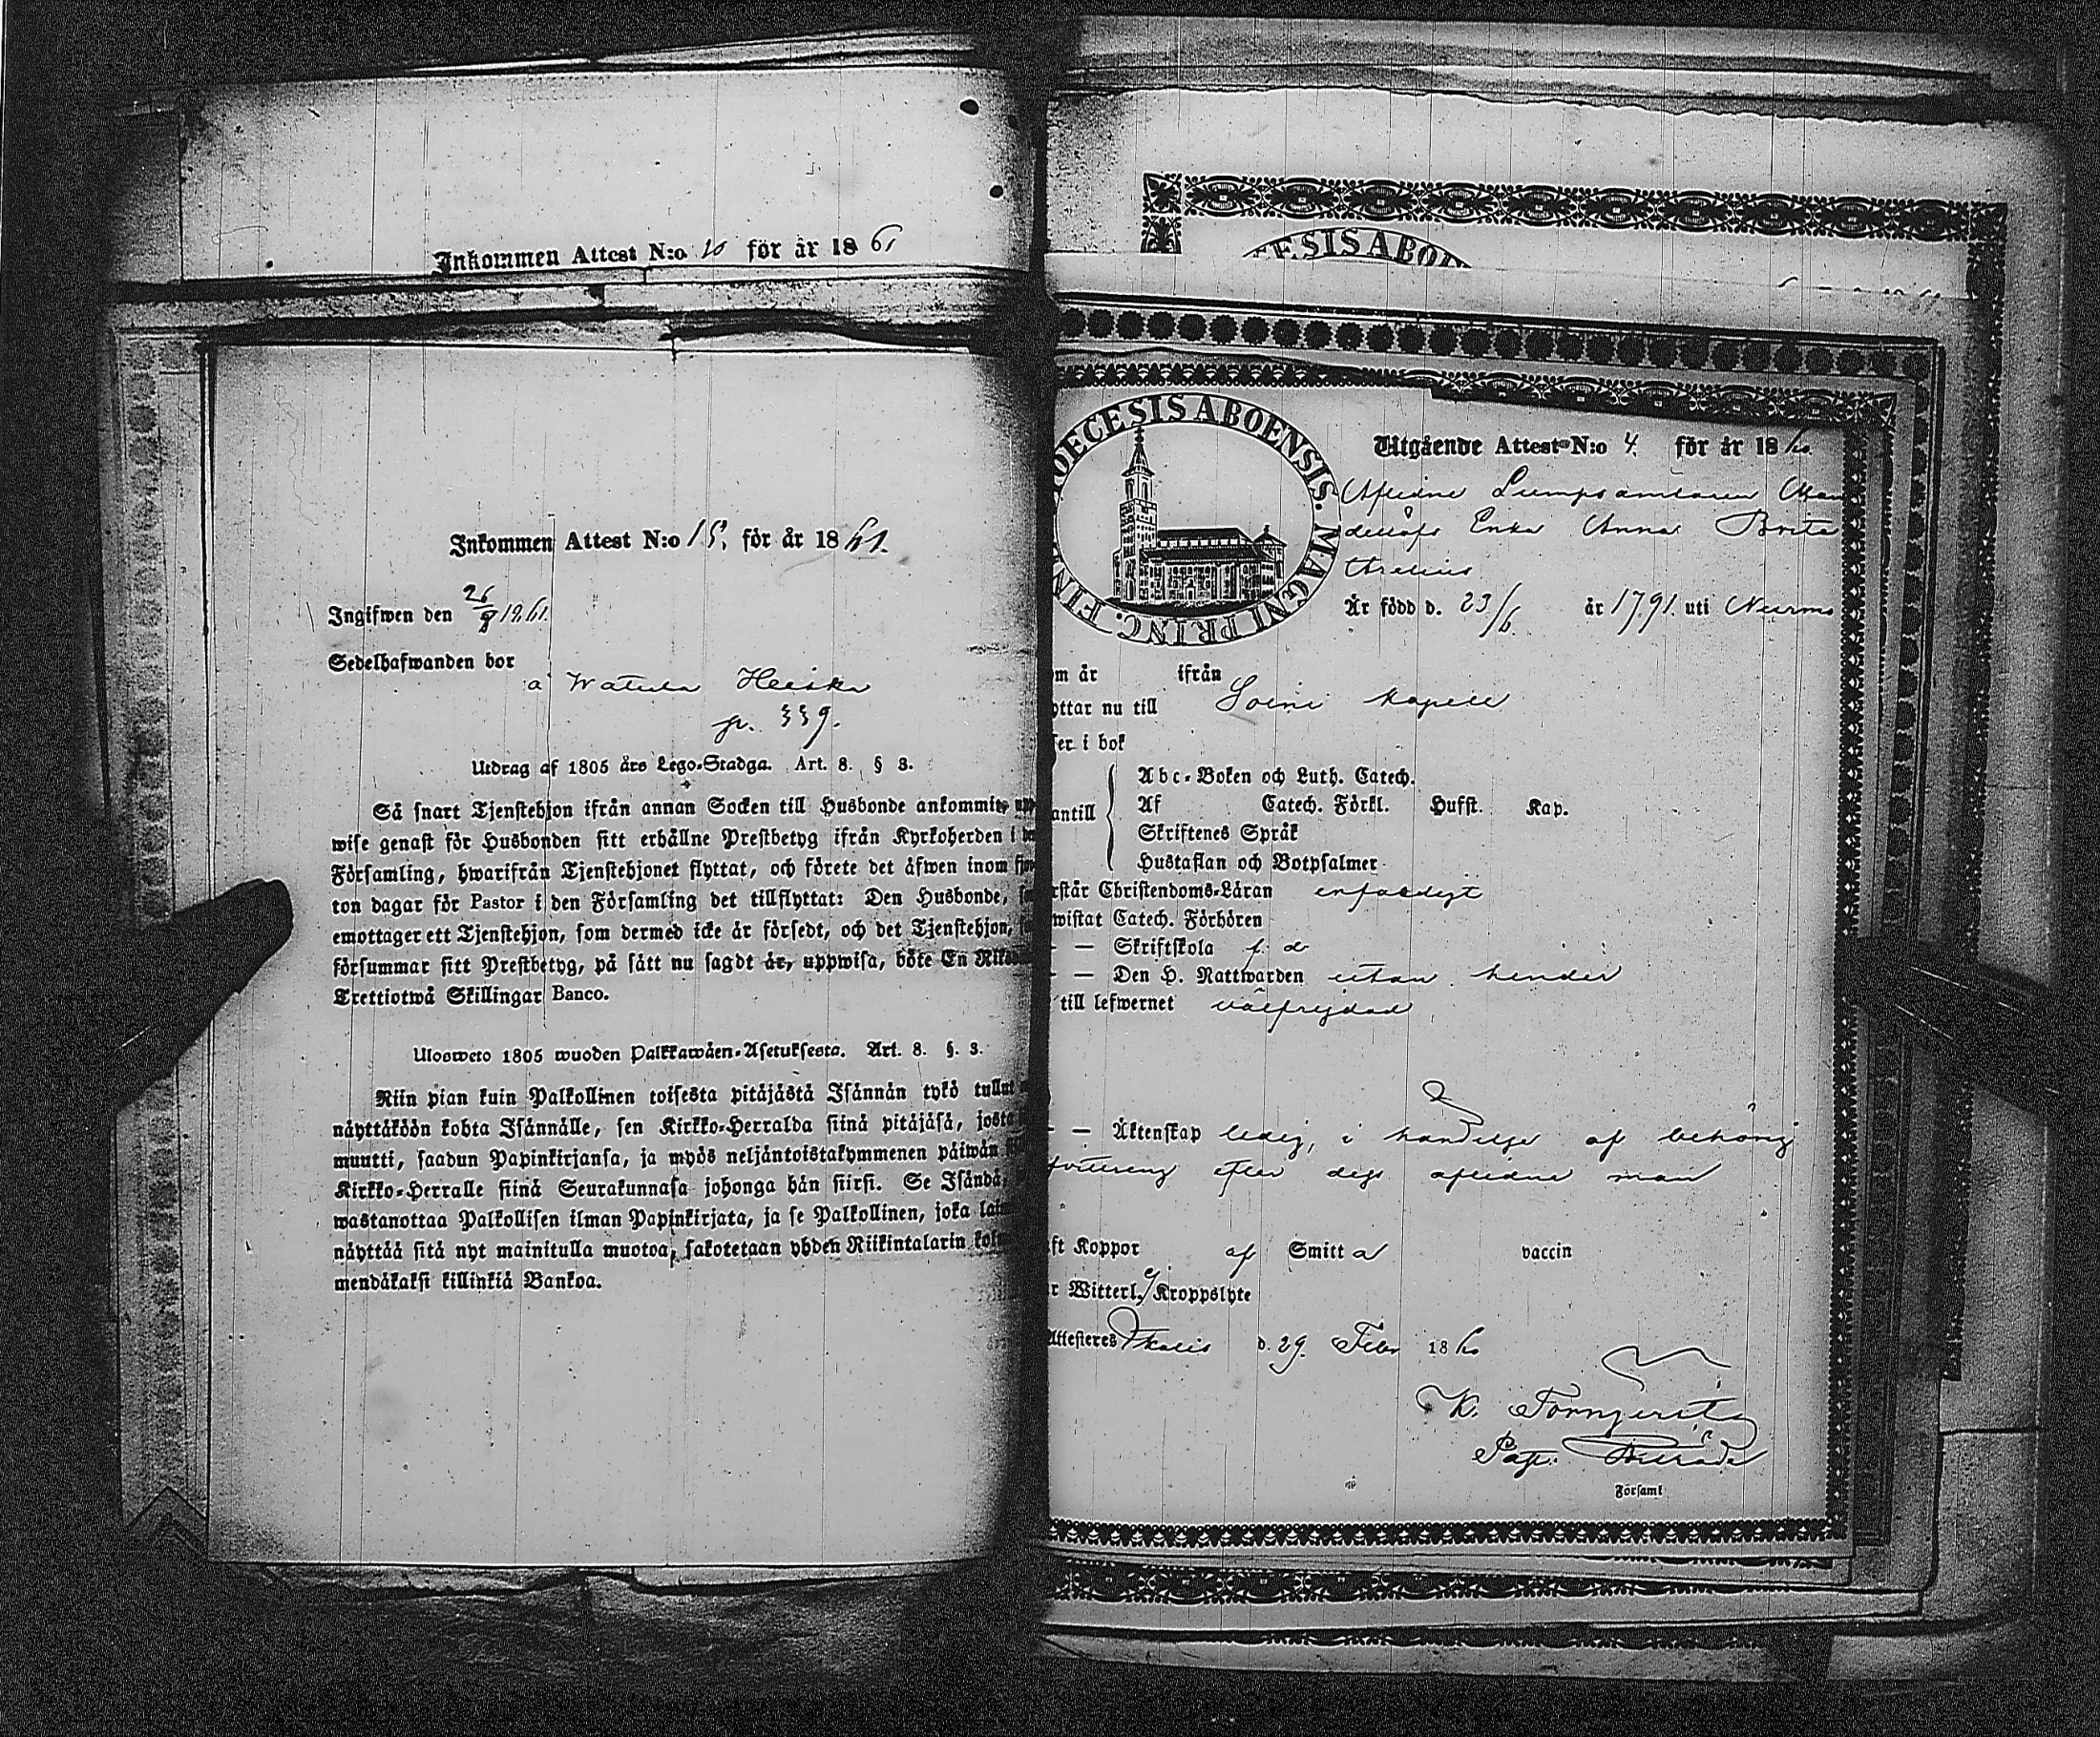 Inkommen Attest N:o 10 för år 1861
Inkommen Attest N:o 15. för år 1861.
Ingifwen den 26/9 1861.
Sedelhafwanden bor
å Watula Heiska
p. 339.
Utdrag af 1805 års Lego-Stadga. Art. 8. § 3.
Så snart Tjenstehjon ifrån annan Socken till Husbonde ankommit, upp
wise genast för Husbonden sitt erhållne Prestbetyg ifrån Kyrkoherden i
Församling, hwarifrån Tjenstehjonet flyttat, och förete det äfwen inom fjor
ton dagar för Pastor i den Församling det tillflyttat: Den Husbonde,
emottager ett Tjenstehjon, som dermed icke är försedt, och det Tjenstehjon,
försummar sitt Prestbetyg, på sätt nu sagdt är, uppwisa, böte En Riks
Trettiotwå Skillingar Banco.
Ulosweto 1805 wuoden Palkkawäen-Asetuksesta. Art. 8. §. 3.
Niin pian kuin Palkollinen toisesta pitäjästä Isännän tykö tullut
näyttäköön kohta Isännälle, sen Kirkko-Herralda siinä pitäjäsä, josta
muutti, saadun Papinkirjansa, ja myös neljäntoistakymmenen päiwän
Kirkko-Herralle siinä Seurakunnasa johonga hän siirsi. Se Isändä,
wastanottaa Palkollisen ilman Papinkirjata, ja se Palkollinen, joka lai
näyttää sitä nyt mainitulla muotoa, sakotetaan yhden Riikintalarin kol
mendäkaksi killinkiä Bankoa.
ECESIS ABOE
DIOECESIS ABOENSIS. MAGNI PRINC. FIN
Utgående Attest N:o 4. för år 1860.
Afledne Lumpsamlaren
Enka Anna Brita
Är född d. 23/6. år 1791. uti Nurmo
om år ifrån
yttar nu till Soini Kapell
ser i bok
antill
Abc-Boken och Luth. Catech.
Af Catech. Förkl. Hufst. Kap.
Skriftenes Språk
Hustaflan och Botpsalmer
rstår Christendoms-Läran enfaldigt
wistat Catech. Förhören
— — Skriftskola f. d
— — Den H. Nattwarden utan hinder
till lefwernet välfrejdad
— — Äktenskap ledig, i händelse af behörig
afvittring efter dess aflidne man
ft Koppor af Smitta vaccin
r Witterl. Kroppslyte
Attesteres Ikalis d. 29. Febr 1860
K. Forngerit
Past. Biträde
Församl